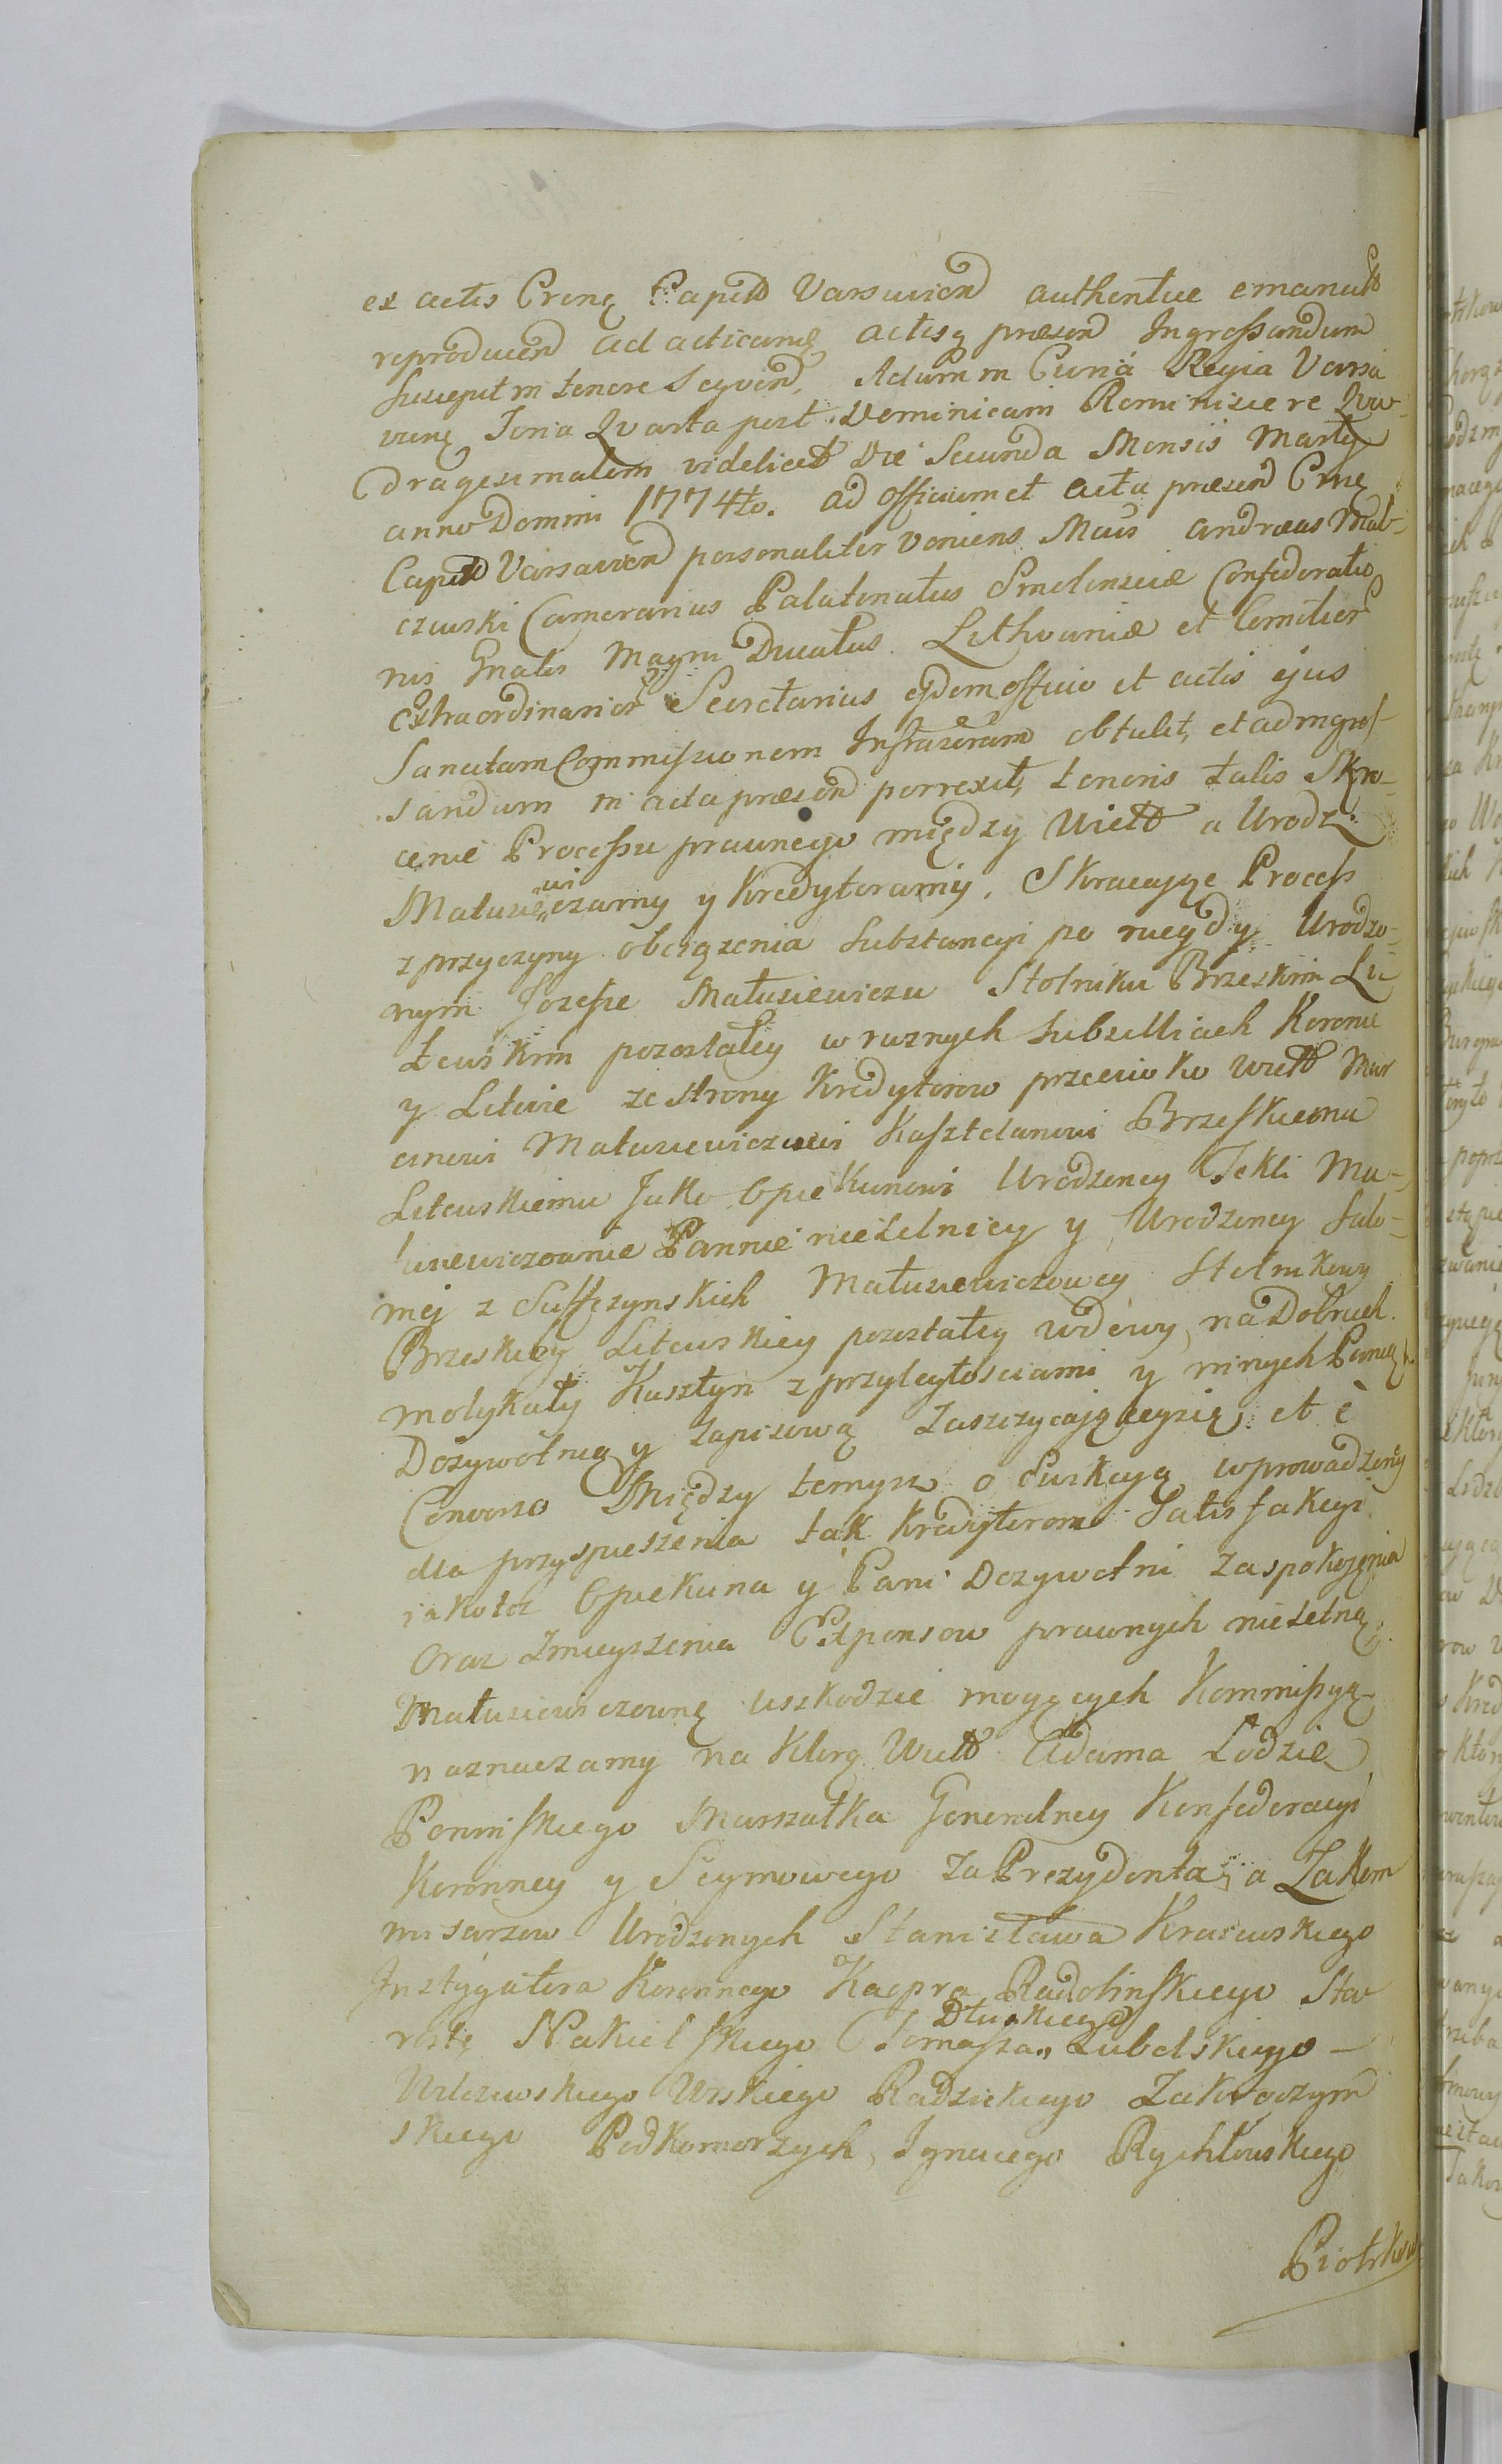 ex actis Crenę Capitt Varsavien authentice emanatt
reproducen ad acticanę actisq præsen Ingrossandum
suscepit in tenore Seqven, Actum in Curia Regia Varsa
vienę Feria Qvarta post Dominicam Reminiscere Qva-
dragesimalem videlicet Die Secunda Mensis Martij
anno Domini 1774to. ad officium et acta præsen Crnę
Capitt Varsavien personaliter veniens Mcus Andreas Mal-
czewski Camerarius Palatinatus Smolensciæ Confederatio
nis Gnalis Magni Ducatus Lithvaniæ et Comitior
Extraordinarior Secretarius ejdem officio et actis ejus
Sancitam Commissionem Infrascram obtulit, et ad ingros-
sandum in acta præsen porrexit, tenoris talis Skro-
cenie Processu prawnego między Wiett a Urodz.
Matusie„czamy y Kredytoramy, Skracaiąc Process
wi
z przyczyny obciążenia Substancyi po niegdy Urodzo-
nym Jozefie Matusiewiczu Stolniku Brzeskim Li
tewskim pozostałey w roznych Subselliach Koronie
y Litwie ze strony Kredytorow przeciwko Wiett Mar
cinowi Matusiewiczowi Kasztelanowi Brzeskiemu
Litewskiemu Jako Opiekunowi Urodzoney Tekli Ma-
tusiewiczownie Pannie nieletnicy y Urodzoney Salo-
mej z Suffczynskich Matusiewiczowey Stolnikowy
Brzeskiey Litewskiey pozostałey wdowy, na Dobrach
Motykały Kusztyn z przyległosciami y innych Prawą
Dozywotnią y zapisową zaszczycaiąceysię, et è
Converso Między temysz o Ewikcyą wprowadzony
dla przyspieszenia tak Kredytorom Satisfakcyi
iakotez Opiekuna y Pani Dozywotni zaspokojenia
Oraz zmieyszenia Expensow prawnych nieletnią
Matusiewiczownę uszkodzic mogących Kommissyą
naznaczamy na Ktorą Wiett Adama Lodzie
Poninskiego Marszałka Generalney Konfederacyi
Koronney y Seymowego za Prezydenta, a Za Kom
misarzow Urodzonych Stanisława Krajewskiego
Instygatora Koronnego Kacpra Radolinskiego Sta
rostę Nakielskiego Tomasza„ Lubelskiego -
Dłuskiego
Wilczewskiego Wiskiego Radzickiego Zakroczym
skiego Podkomorzych, Ignacego Rychłowskiego
Piotrkow